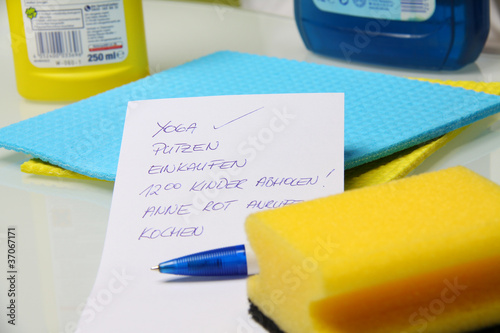 250 ml
YOGA ✓
PUTZEN
EINKAUFEN
12 00 KINDER ABHOLEN!
ANNE ROT ANRUFE
KOCHEN
Adobe Stock | #37067171